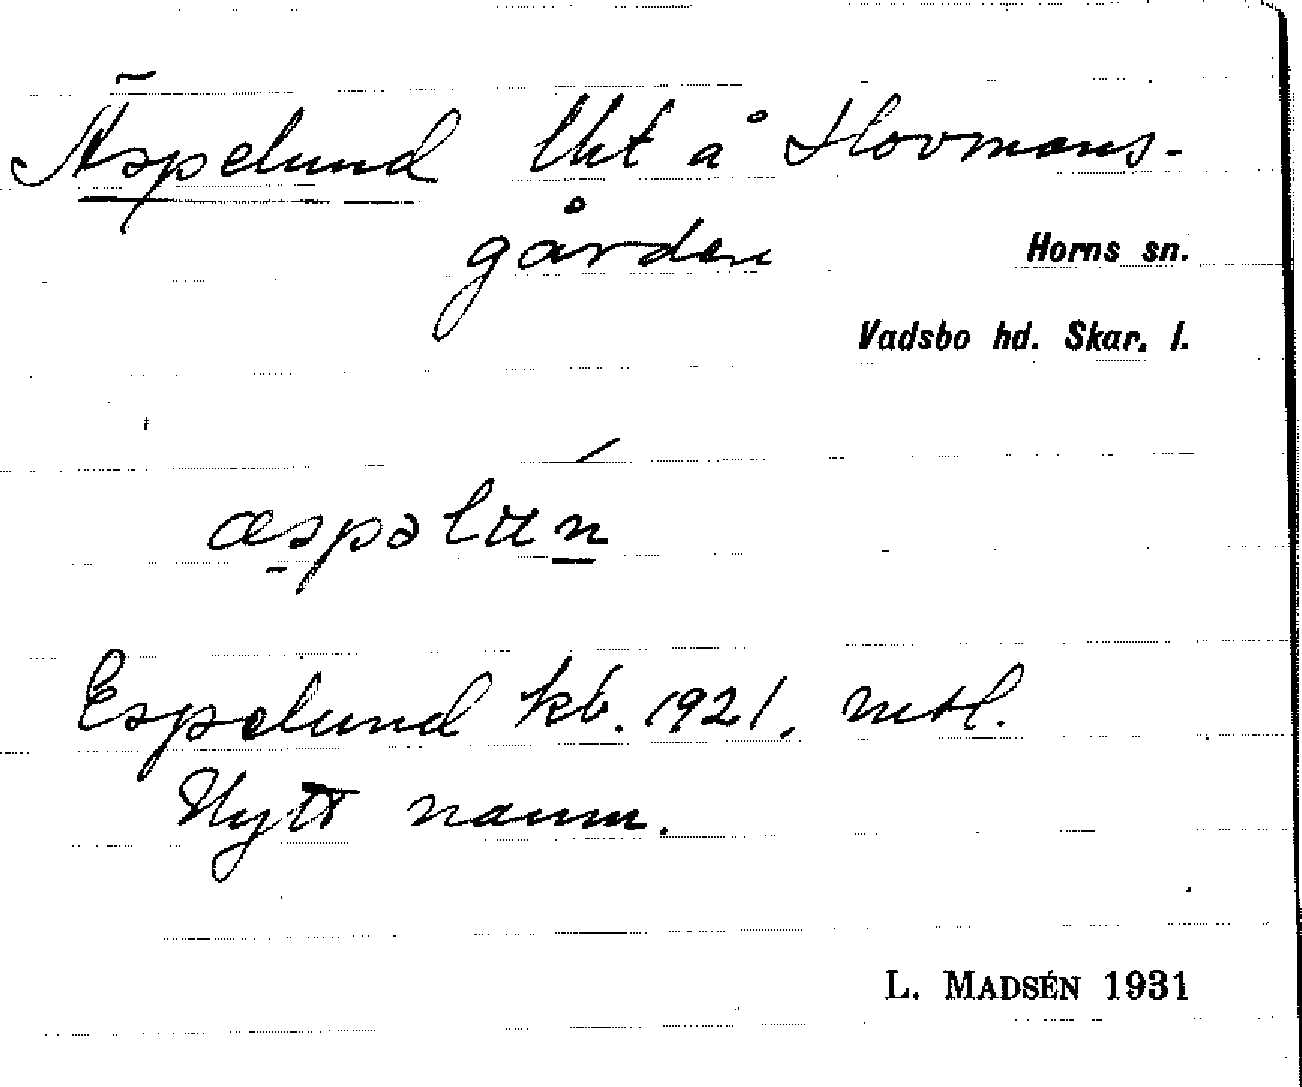 Äspelund lht å Hovmans-
gården
Horns sn.
Vadsbo hd. Skar. l.
æspəlu̇n
Espelund kb. 1921, mtl.
Nytt namn.
L. MADSÉN 1931